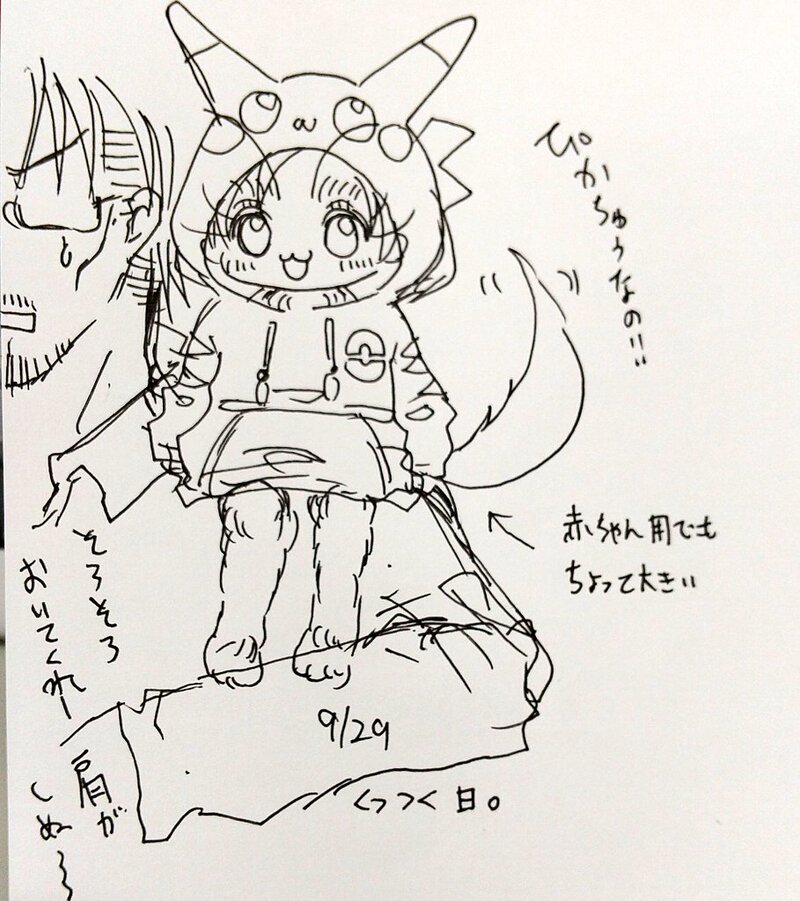 ぴかちゅうなの!!
赤ちゃん用でも
ちょって大きい
そろそろ
おいてくれー
肩が
しぬ〜〜
9/29
くっつく日。